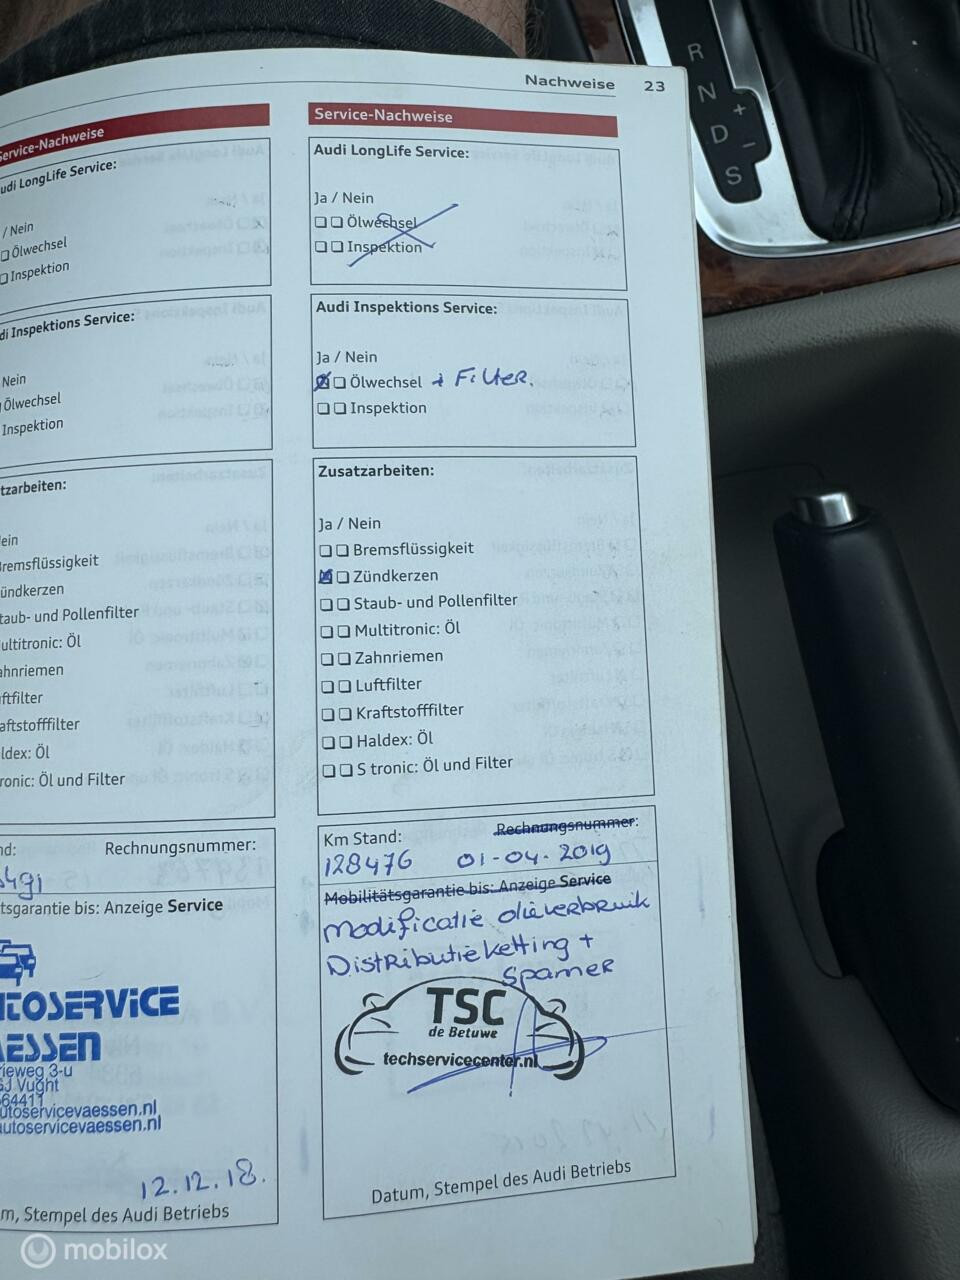 Nachweise 23
Service-Nachweise
udi LongLife Service:
/ Nein
Ölwechsel
Inspektion
di Inspektions Service:
Nein
Ölwechsel
Inspektion
tzarbeiten:
ein
remsflüssigkeit
ündkerzen
taub- und Pollenfilter
ultitronic: Öl
ahnriemen
ftfilter
aftstofffilter
ldex: Öl
ronic: Öl und Filter
nd: Rechnungsnummer:
tsgarantie bis: Anzeige Service
TOSERVICE
ESSEN
rieweg 3-u
GJ Vught
64411
utoservicevaessen.nl
utoservicevaessen.nl
12.12.18.
m, Stempel des Audi Betriebs
Service-Nachweise
Audi LongLife Service:
Ja / Nein
Ölwechsel
Inspektion
Audi Inspektions Service:
Ja / Nein
Ölwechsel + Filter.
Inspektion
Zusatzarbeiten:
Ja / Nein
Bremsflüssigkeit
Zündkerzen
Staub- und Pollenfilter
Multitronic: Öl
Zahnriemen
Luftfilter
Kraftstofffilter
Haldex: Öl
S tronic: Öl und Filter
Km Stand: Rechnungsnummer:
128476 01-04-2019
Mobilitätsgarantie bis: Anzeige Service
Modificatie olieverbruik
Distributieketting +
Spanner
TSC
de Betuwe
techservicecenter.nl
Datum, Stempel des Audi Betriebs
R
N
D
S
+
-
mobilox